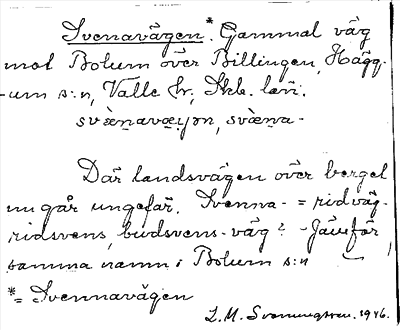 Svenavägen.* Gammal väg
mot Bolum över Billingen, Hägg-
um s:n, Valle hr, Skb. län.
svæ̀navæ̣ɪȷən, svæ̀na-
Där landsvägen över berget
nu går ungefär. Svenna- = ridväg-
ridsvens, budsvens-väg? - Jämför
samma namn i Bolum s:n
*= Svennavägen
L.M. Svenungsson. 1946.